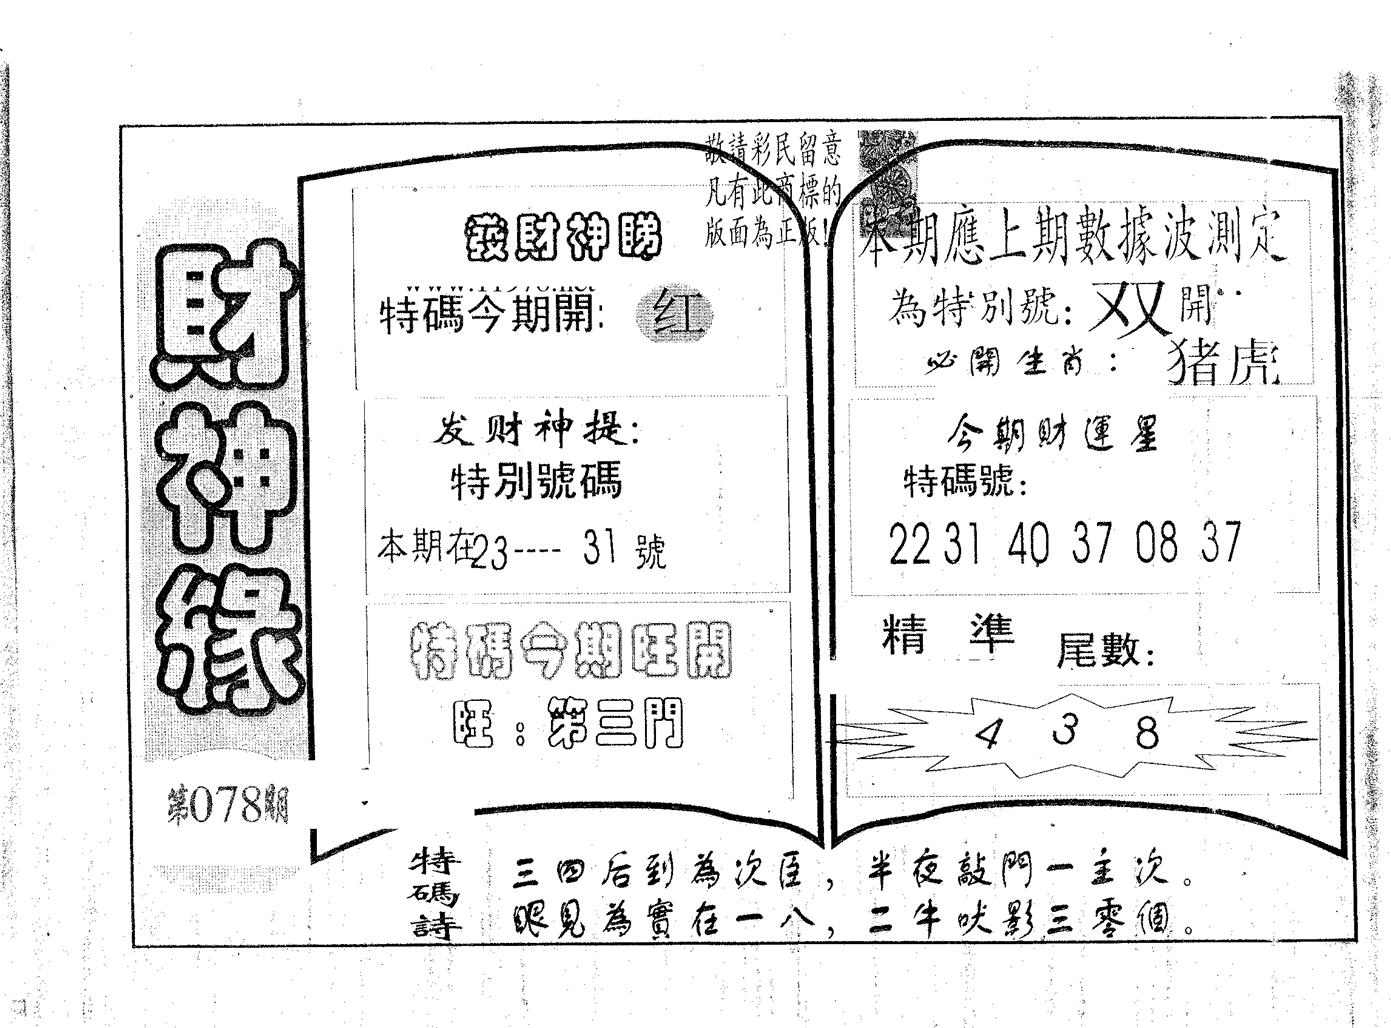 財神緣
第078期
敬請彩民留意
凡有此商標的
版面為正版!
發財神睇
www.11978.net
特碼今期開: 红
发财神提:
特別號碼
本期在23---- 31 號
特碼今期旺開
旺:第三門
本期應上期數據波測定
為特別號: 双 開
必開生肖: 猪虎
今期財運星
特碼號:
22 31 40 37 08 37
精 準 尾數:
4 3 8
特碼詩
三四后到為次臣,半夜敲門一主次。
眼見為實在一八,二牛吠影三零個。